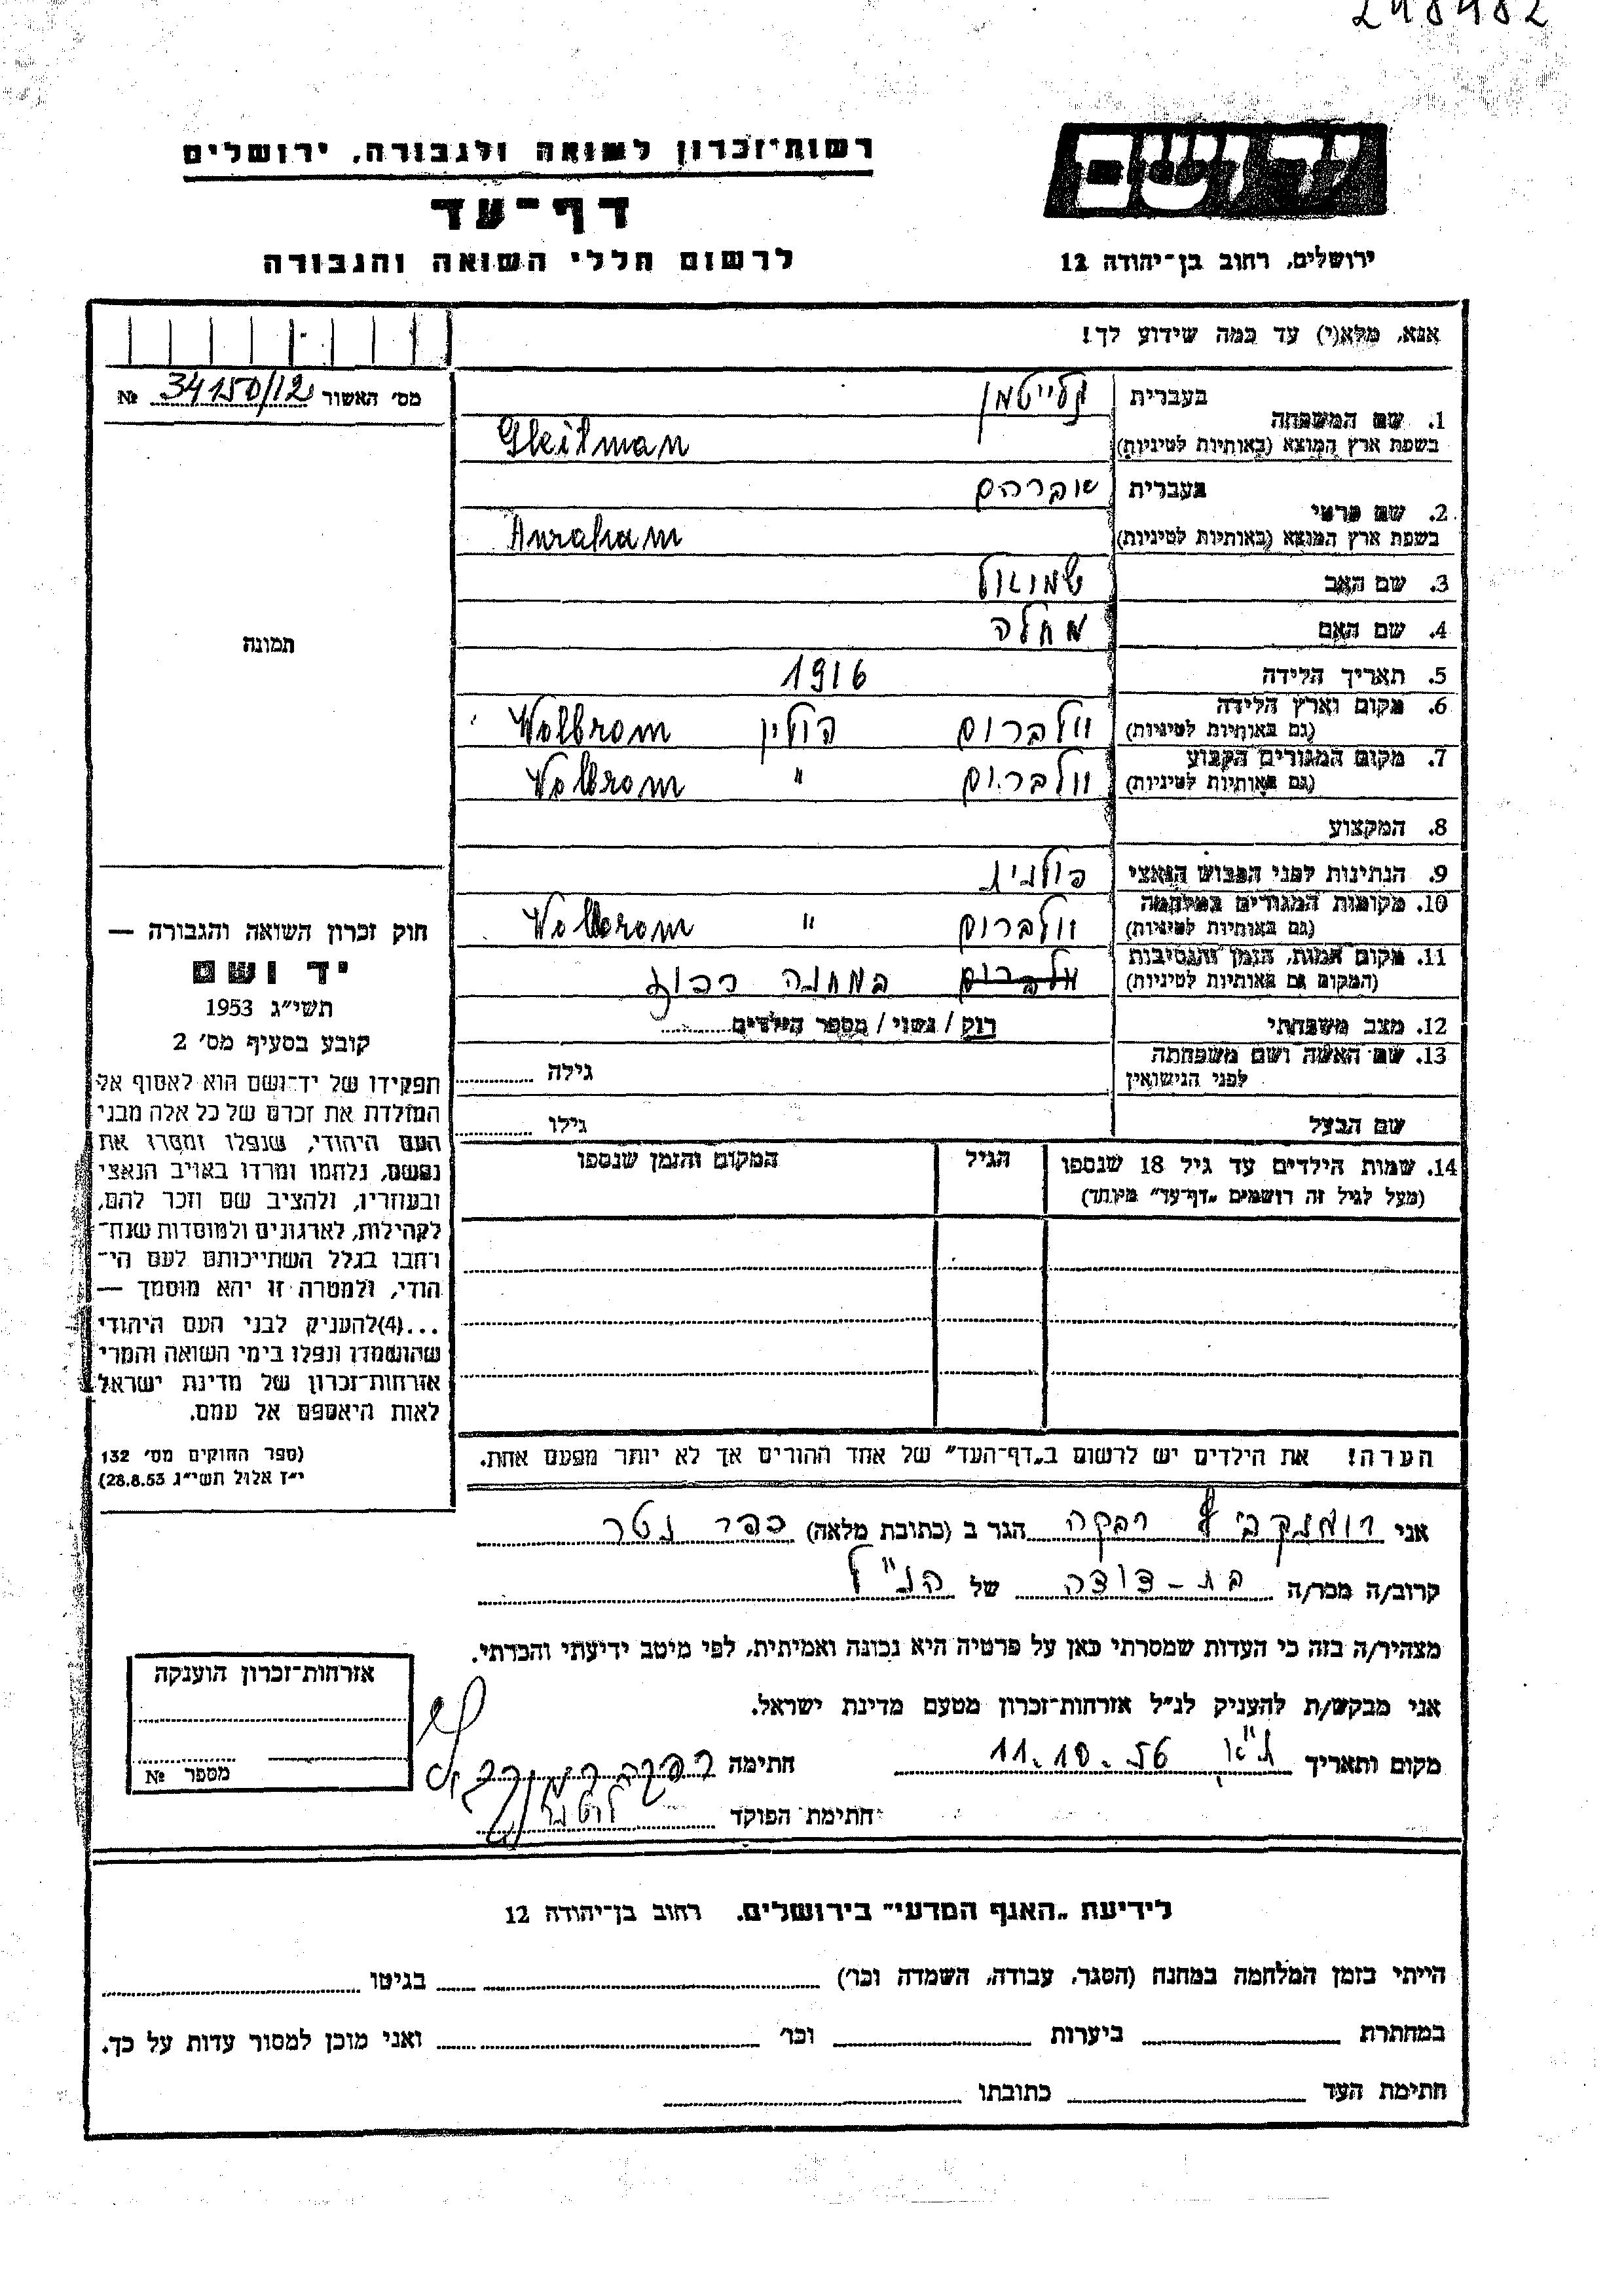 248482
רשות־זכרון לשואה ולגבורה, ירושלים
יד ושם
דף־עד
ירושלים, רחוב בן־יהודה 12
לרשום חללי השואה והגבורה
אנא, מלא(י) עד כמה שידוע לך!
מס׳ האשור 34150/12 №
1. שם המשפחה בעברית גלייטמן
בשפת ארץ המוצא (באותיות לטיניות) Gleitman
2. שם פרטי בעברית אברהם
בשפת ארץ המוצא (באותיות לטיניות) Avraham
3. שם האב שמואל
4. שם האם מחלה
תמונה
5. תאריך הלידה 1916
6. מקום וארץ הלידה
(גם באותיות לטיניות) וולברום פולין Wolbrom
7. מקום המגורים הקבוע
(גם באותיות לטיניות) וולברום " Wolbrom
8. המקצוע
9. הנתינות לפני הכבוש הנאצי פולנית
10. מקומות המגורים במלחמה
(גם באותיות לטיניות) וולברום " Wolbrom
11. מקום המות, הזמן והנסיבות
(המקום גם באותיות לטיניות) וולברום במחנה רכוז
12. מצב משפחתי רוק / נשוי / מספר הילדים
13. שם האשה ושם משפחתה
לפני הנישואין גילה
שם הבעל גילו
14. שמות הילדים עד גיל 18 שנספו הגיל המקום והזמן שנספו
(מעל לגיל זה רושמים „דף־עד״ מיוחד)
חוק זכרון השואה והגבורה —
יד ושם
תשי״ג 1953
קובע בסעיף מס׳ 2
תפקידו של יד־ושם הוא לאסוף אל
המולדת את זכרם של כל אלה מבני
העם היהודי, שנפלו ומסרו את
נפשם, נלחמו ומרדו באויב הנאצי
ובעוזריו, ולהציב שם וזכר להם,
לקהילות, לארגונים ולמוסדות שנח־
רחבו בגלל השתייכותם לעם הי־
הודי, ולמטרה זו יהא מוסמך —
...(4)להעניק לבני העם היהודי
שהושמדו ונפלו בימי השואה והמרי
אזרחות־זכרון של מדינת ישראל
לאות היאספם אל עמם.
(ספר החוקים מס׳ 132
י״ז אלול תשי״ג 28.8.53)
הערה! את הילדים יש לרשום ב„דף־העד״ של אחד ההורים אך לא יותר מפעם אחת.
אני רבקה הגר ב (כתובת מלאה) כפר נטר
קרוב/ה מכר/ה בת-דודה של הנ"ל
מצהיר/ה בזה כי העדות שמסרתי כאן על פרטיה היא נכונה ואמיתית, לפי מיטב ידיעתי והכרתי.
אני מבקש/ת להעניק לנ״ל אזרחות־זכרון מטעם מדינת ישראל.
מקום ותאריך ת"א 11.10.56 חתימה
חתימת הפוקד
אזרחות־זכרון הוענקה
מספר №
לידיעת „האגף המדעי״ בירושלים. רחוב בן־יהודה 12
הייתי בזמן המלחמה במחנה (הסגר, עבודה, השמדה וכו׳) בגיטו
במחתרת ביערות וכו׳ ואני מוכן למסור עדות על כך.
חתימת העד כתובתו